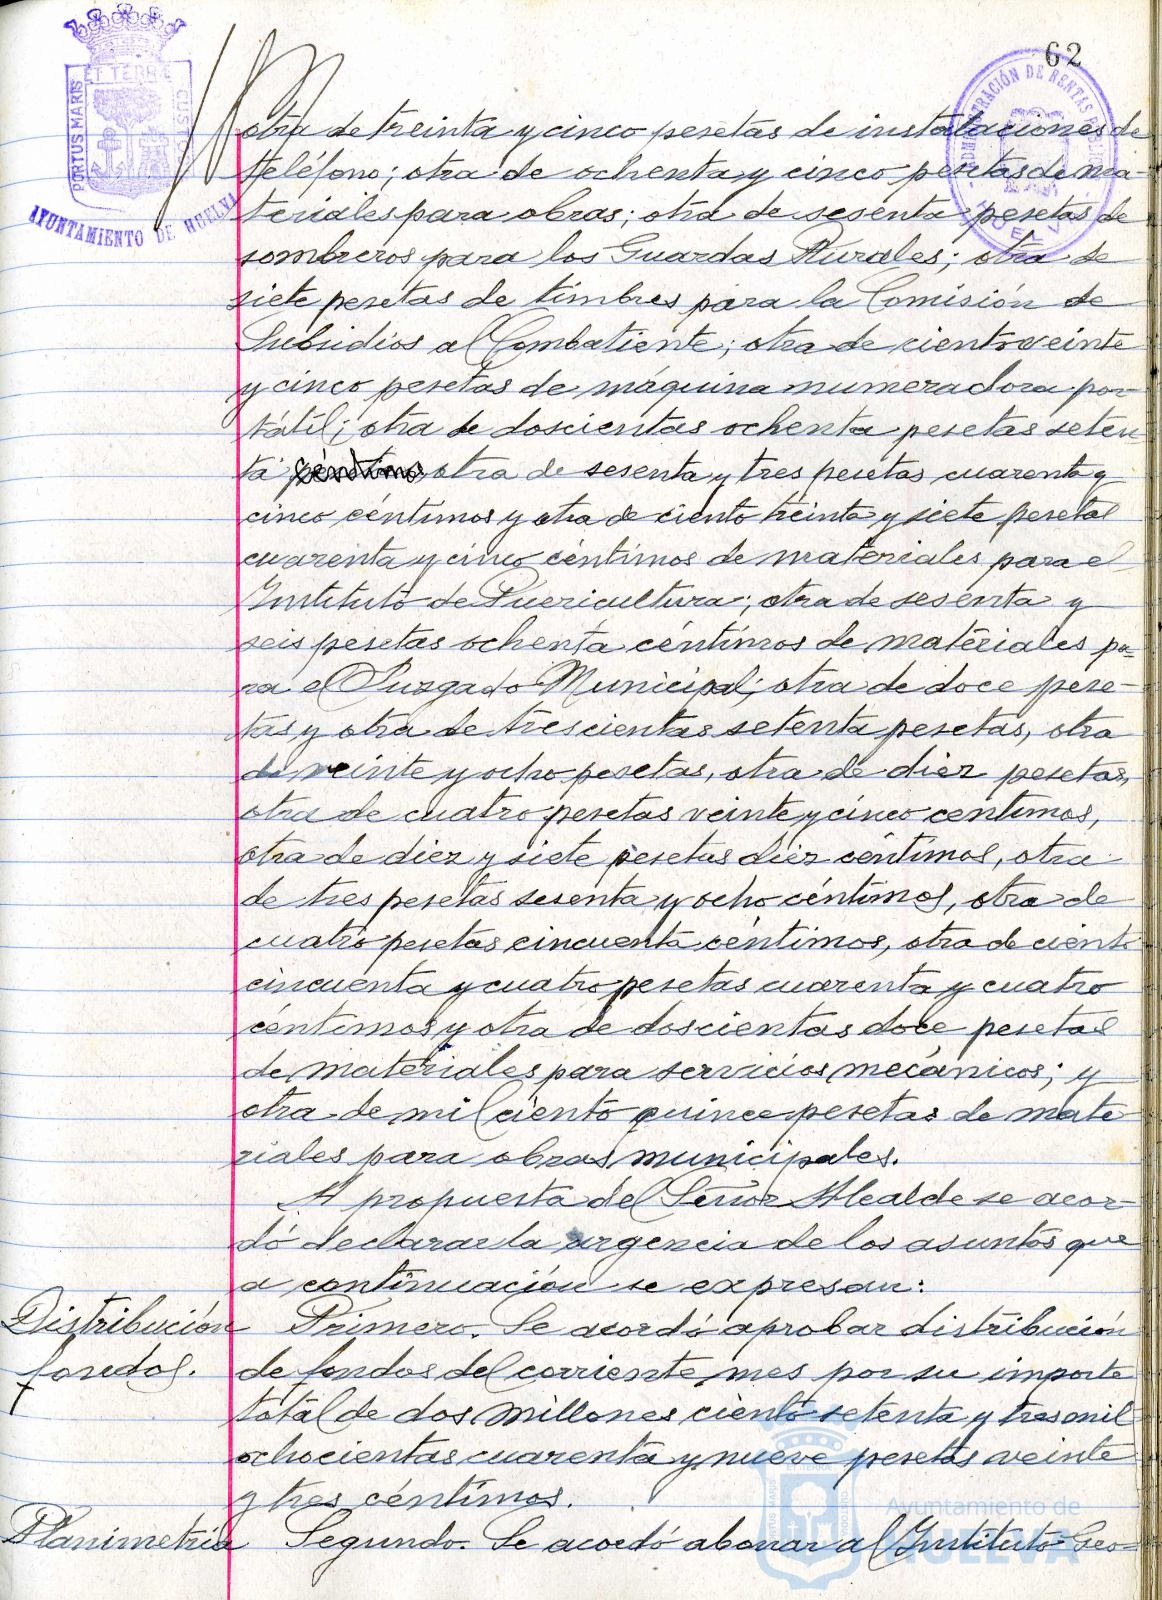 62
PORTUS MARIS ET TERRÆ CUSTODIA
AYUNTAMIENTO DE HUELVA
ADMINISTRACIÓN DE RENTAS PÚBLICAS
HUELVA
otra de treinta y cinco pesetas de instalaciones de
teléfono; otra de ochenta y cinco pesetas de ma-
teriales para obras; otra de sesenta pesetas de
sombreros para los Guardas Rurales; otra de
siete pesetas de timbres para la Comisión de
Subsidios al Combatiente; otra de ciento veinte
y cinco pesetas de máquina numeradora por-
tátil; otra de doscientas ochenta pesetas seten
ta céntimos otra de sesenta y tres pesetas cuarenta y
cinco céntimos y otra de ciento treinta y siete pesetas
cuarenta y cinco céntimos de materiales para el
Instituto de Puericultura; otra de sesenta y
seis pesetas ochenta céntimos de materiales pa-
ra el Juzgado Municipal; otra de doce pese-
tas y otra de trescientas setenta pesetas, otra
de veinte y ocho pesetas, otra de diez pesetas,
otra de cuatro pesetas veinte y cinco centimos,
otra de diez y siete pesetas diez céntimos, otra
de tres pesetas sesenta y ocho céntimos, otra de
cuatro pesetas cincuenta céntimos, otra de ciento
cincuenta y cuatro pesetas cuarenta y cuatro
céntimos y otra de doscientas doce pesetas
de materiales para servicios mecánicos; y
otra de mil ciento quince pesetas de mate
riales para obras municipales.
A propuesta del Señor Alcalde se acor-
dó declarar la urgencia de los asuntos que
a continuación se expresan:
Distribución Primero. Se acordó aprobar distribución
fondos. de fondos del corriente mes por su importe
total de dos millones ciento setenta y tres mil
ochocientas cuarenta y nueve pesetas veinte
y tres céntimos.
Planimetría Segundo. Se acordó abonar al Instituto Geo-
Ayuntamiento de
HUELVA